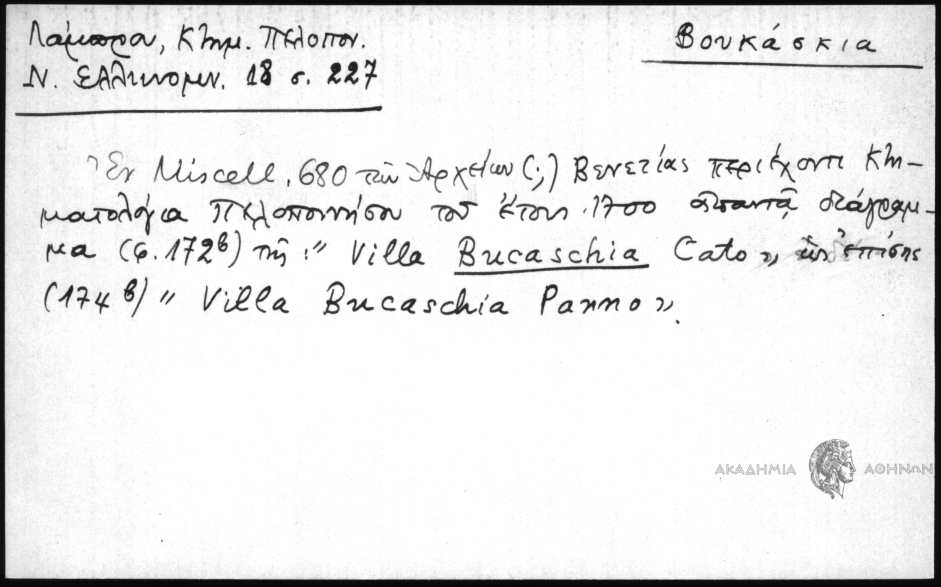 Λάμπρου, Κτημ. Πελοπον.
Ν. Ελληνομν. 18 σ. 227
Βουκάσκια
Ἐν Miscell. 680 τῶν Ἀρχείων (;) Βενετίας περιέχοντι κτη-
ματολόγια Πελοποννήσου τοῦ ἔτους 1700 ἀπαντᾷ διάγραμ-
μα (φ. 172β) τῆς " Villa Bucaschia Cato», ὡς ἐπίσης
(174β) " Villa Bucaschia Panno».
ΑΚΑΔΗΜΙΑ ΑΘΗΝΩΝ